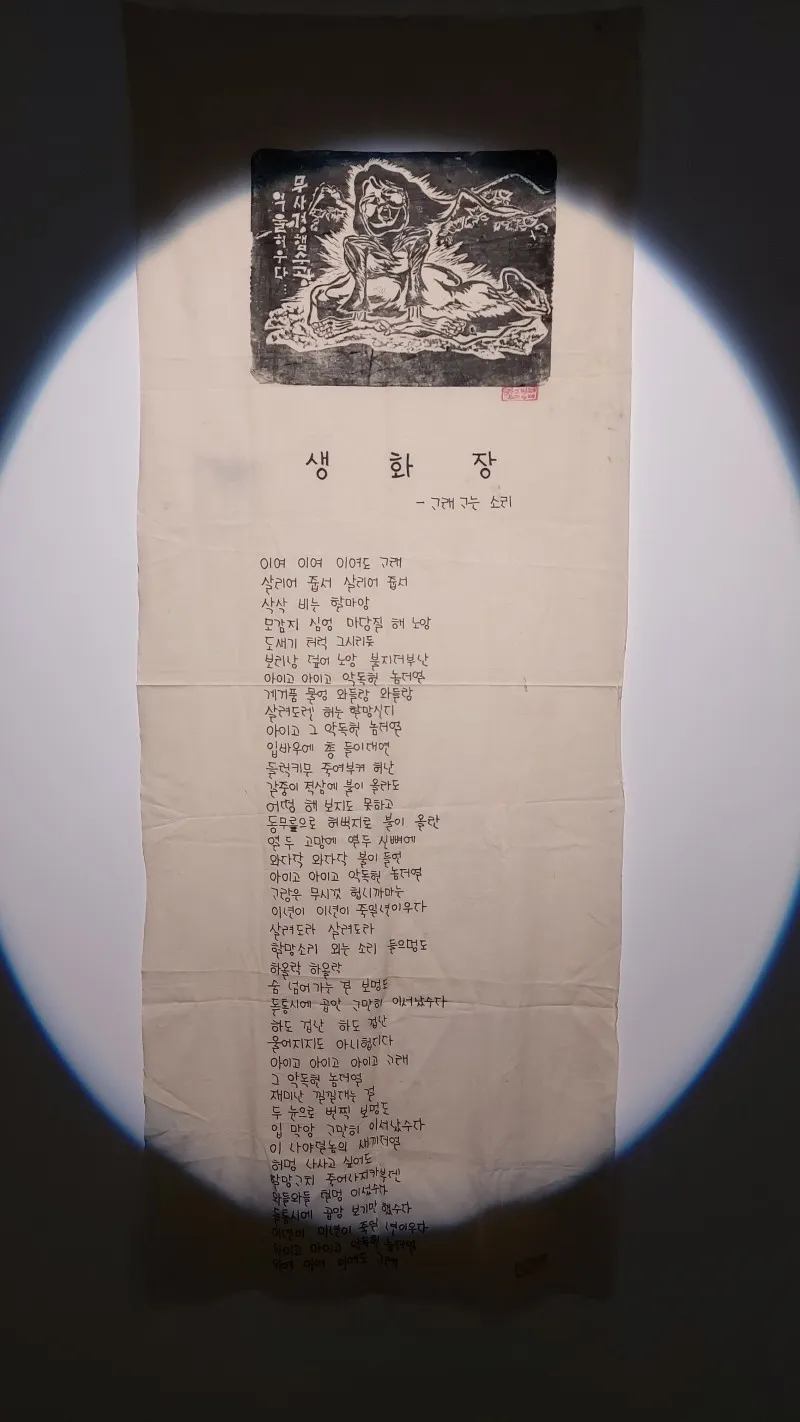 생 화 장
- ᄀᆞ래 ᄀᆞ는 소리
이여 이여 이여도 ᄀᆞ래
살리어 줍서 살리어 줍서
삭삭 비는 할마앙
모감지 심엉 마당질 해 노앙
도새기 터럭 그시리듯
보리낭 덮어 노앙 불지더부난
아이고 아이고 악독헌 놈더열
게거품 물엉 와들랑 와들랑
살려도렌 허는 할망신디
아이고 그 악독헌 놈더열
입바우에 총 들이대연
들럭키믄 죽여부켜 허난
갈중이 적삼에 불이 올라도
어떵 해 보지도 못하고
동무릎으로 허벅지로 불이 올란
열두 고망에 열두 신뼈에
와다닥 와다닥 불이 들언
아이고 아이고 악독헌 놈더열
ᄀᆞ랑은 무시것 헙니까마는
이년이 이년이 죽일년이우다
살려도라 살려도라
할망소리 외는 소리 들으멍도
하올락 하올락
숨 넘어가는 걸 보멍도
돗통시에 곱안 ᄀᆞ만히 이서났수다
하도 겁난 하도 겁난
울어지지도 아니헙디다
아이고 아이고 아이고 ᄀᆞ래
그 악독헌 놈더열
재미난 낄낄대는 걸
두 눈으로 번찍 보멍도
입 막앙 ᄀᆞ만히 이서났수다
이 나야덜놈의 새끼더열
허멍 나사고 싶어도
할망ᄀᆞ치 죽어나지카부덴
와들와들 털멍 이섰수다
돗통시에 곱앙 보기만 했수다
이년이 이년이 죽일 년이우다
아이고 아이고 악독헌 놈더열
이여 이여 이여도 ᄀᆞ래